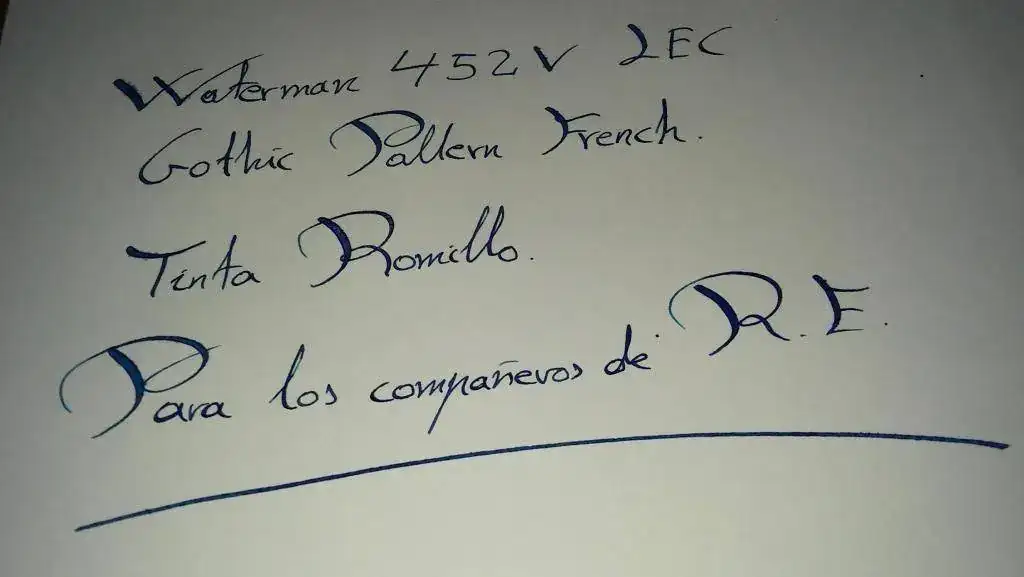 Waterman 452V LEC
Gothic Pattern French.
Tinta Romillo.
Para los compañeros de R.E.